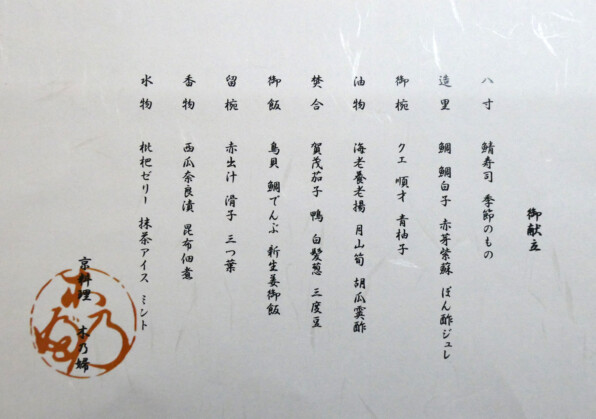 御献立
八寸 鯖寿司 季節のもの
造里 鯛 鯛白子 赤芽紫蘇 ぽん酢ジュレ
御椀 クエ 順才 青柚子
油物 海老養老揚 月山筍 胡瓜霙酢
焚合 賀茂茄子 鴨 白髪葱 三度豆
御飯 鳥貝 鯛でんぶ 新生姜御飯
留椀 赤出汁 滑子 三つ葉
香物 西瓜奈良漬 昆布佃煮
水物 枇杷ゼリー 抹茶アイス ミント
京料理 木乃婦
木乃婦